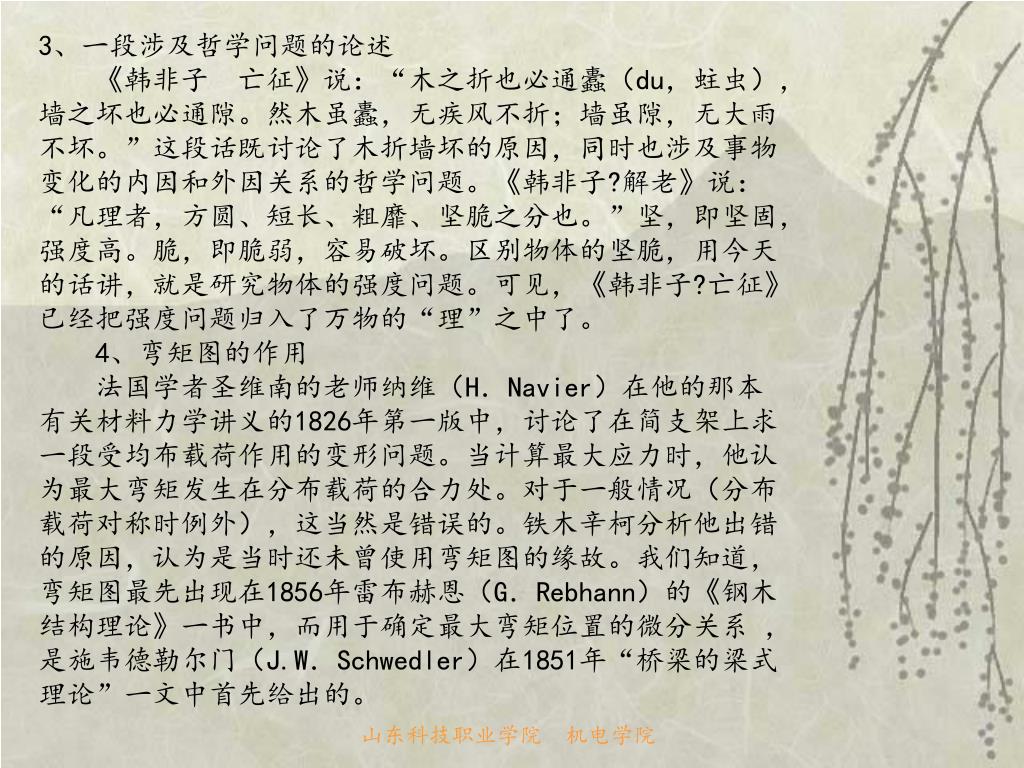 3、一段涉及哲学问题的论述
《韩非子　亡征》说：“木之折也必通蠹（du，蛀虫），
墙之坏也必通隙。然木虽蠹，无疾风不折；墙虽隙，无大雨
不坏。”这段话既讨论了木折墙坏的原因，同时也涉及事物
变化的内因和外因关系的哲学问题。《韩非子?解老》说：
“凡理者，方圆、短长、粗靡、坚脆之分也。”坚，即坚固，
强度高。脆，即脆弱，容易破坏。区别物体的坚脆，用今天
的话讲，就是研究物体的强度问题。可见，《韩非子?亡征》
已经把强度问题归入了万物的“理”之中了。
4、弯矩图的作用
法国学者圣维南的老师纳维（H．Navier）在他的那本
有关材料力学讲义的1826年第一版中，讨论了在简支架上求
一段受均布载荷作用的变形问题。当计算最大应力时，他认
为最大弯矩发生在分布载荷的合力处。对于一般情况（分布
载荷对称时例外），这当然是错误的。铁木辛柯分析他出错
的原因，认为是当时还未曾使用弯矩图的缘故。我们知道，
弯矩图最先出现在1856年雷布赫恩（G．Rebhann）的《钢木
结构理论》一书中，而用于确定最大弯矩位置的微分关系 ，
是施韦德勒尔门（J.W．Schwedler）在1851年“桥梁的梁式
理论”一文中首先给出的。
山东科技职业学院　机电学院